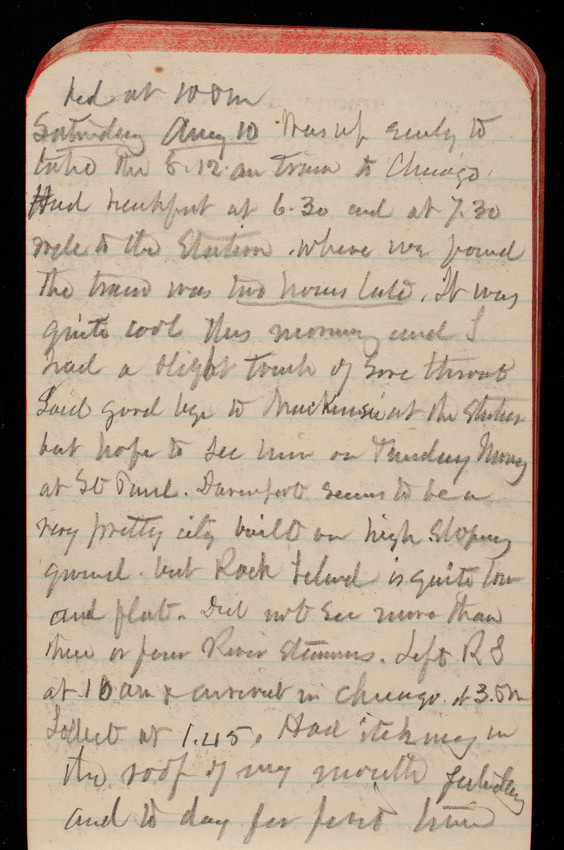 bed at 10 Pm
Saturday Aug 10 Was up early to
take the 8.12 am train to Chicago.
Had breakfast at 6.30 and at 7.30
rode to the Station. where we found
the train was two hours late. It was
quite cool this morning and I
had a slight touch of Sore throat
Said good bye to Mackinsie at the Station
but hope to see him on Tuesday Morng
at St Paul. Davenport seems to be a
very pretty city built on high sloping
ground. but Rock Island is quite low
and flat. Did not see more than
three or four River Steamers. Left R I
at 10 am & arrived in Chicago at 3.
at 1.45. Had itching in
the roof of my mouth yesterday
and to day for first time